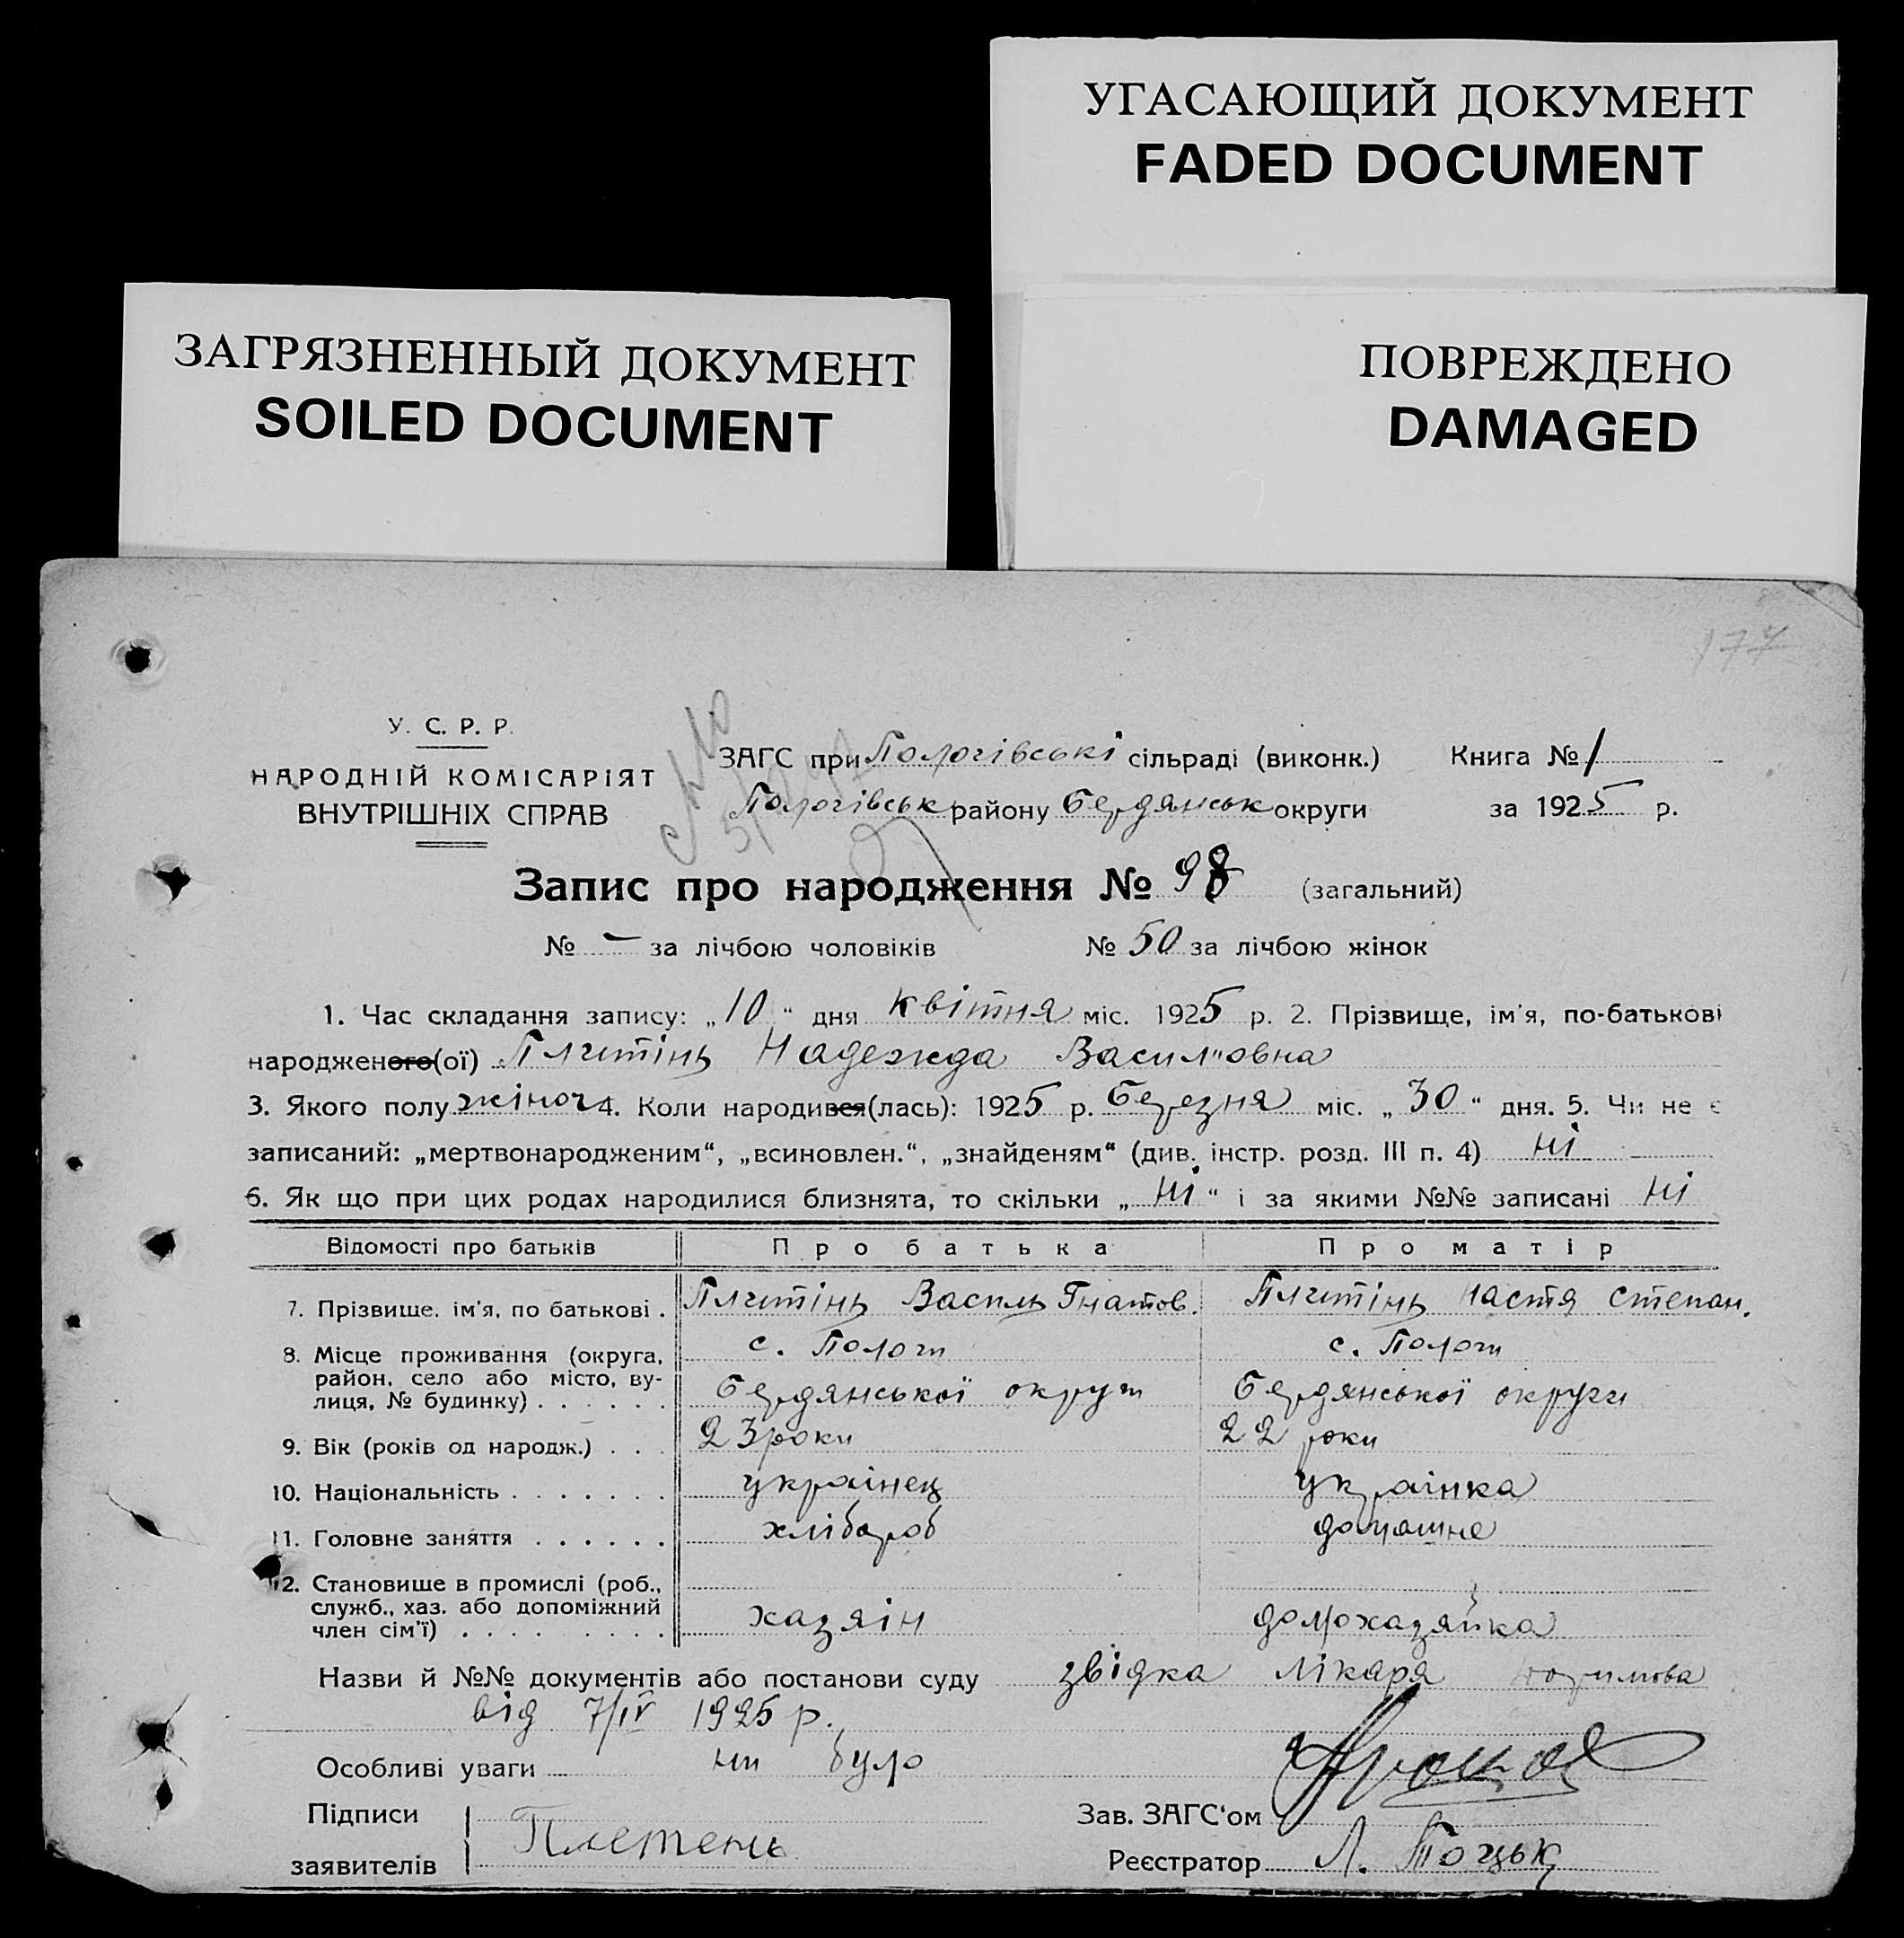 УГАСАЮЩИЙ ДОКУМЕНТ
FADED DOCUMENT
ЗАГРЯЗНЕННЫЙ ДОКУМЕНТ
SOILED DOCUMENT
ПОВРЕЖДЕНО
DAMAGED
177
У. С. Р. Р.
НАРОДНІЙ КОМІСАРІЯТ
ВНУТРІШНІХ СПРАВ
ЗАГС при Пологівські сільраді (виконк.) Книга № 1
Пологівськ району Бердянськ округи за 1925 р.
Запис про народження № 98 (загальний)
№ – за лічбою чоловіків № 50 за лічбою жінок
1. Час складання запису: „10“ дня квітня міс. 1925 р. 2. Прізвище, ім'я, по-батькові
народженого(ої) Плитінь Надежда Васильовна
3. Якого полу жіноч 4. Коли народився(лась): 1925 р. Березня міс. „30“ дня. 5. Чи не є
записаний: „мертвонародженим“, „всиновлен.“, „знайденям“ (див. інстр. розд. III п. 4) ні
6. Як що при цих родах народилися близнята, то скільки „ні“ і за якими №№ записані ні
Відомості про батьків Про батька Про матір
7. Прізвише, ім'я, по батькові . Плитінь Василь Гнатов. Плитінь Настя Степан.
8. Місце проживання (округа, район, село або місто, вулиця, № будинку) . . . . . . с. Пологи с. Пологи
Бердянської округи Бердянської округи
9. Вік (років од народж.) . . . 23 роки 22 роки
10. Національність . . . . . . . українец українка
11. Головне заняття . . . . . . хлібороб домашне
12. Становище в промислі (роб., служб., хаз. або допоміжний член сім'ї) . . . . . . . . . хазяін домохазяйка
Назви й №№ документів або постанови суду звідка лікаря
від 7/IV 1925 р.
Особливі уваги ни було
Підписи
заявителів Плетень
Зав. ЗАГС'ом
Реєстратор Л.